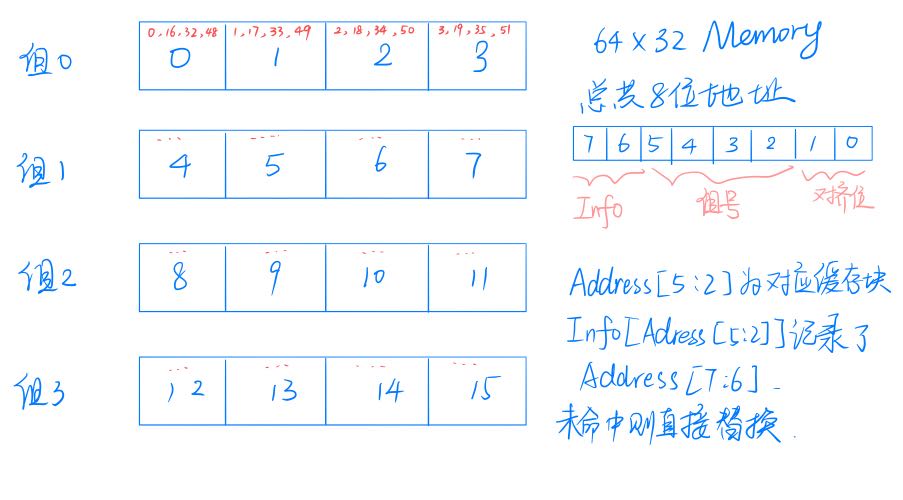 0,16,32,48 1,17,33,49 2,18,34,50 3,19,35,51
组0 0 1 2 3
组1 4 5 6 7
组2 8 9 10 11
组3 12 13 14 15
64×32 Memory
总共8位地址
7 6 5 4 3 2 1 0
Info 组号 对挤位
Address[5:2]为对应缓存块
Info[Adress[5:2]]记录了
Address[7:6].
未命中则直接替换.